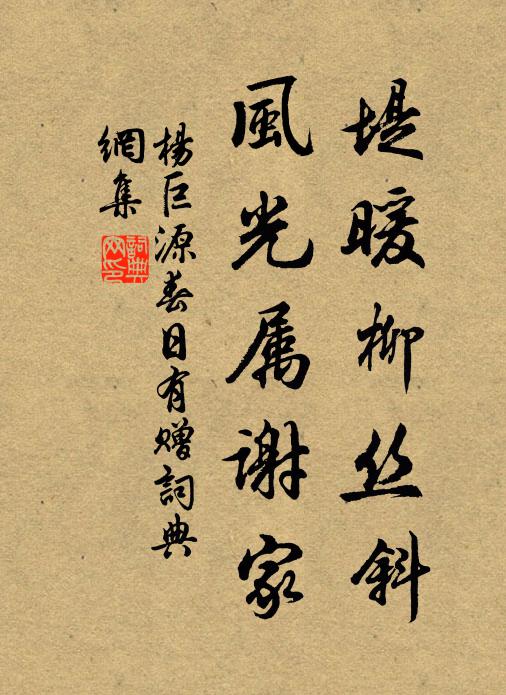 堤暖柳丝斜
風光属謝家
楊巨源春日有赠詞典
網集
詞典網印